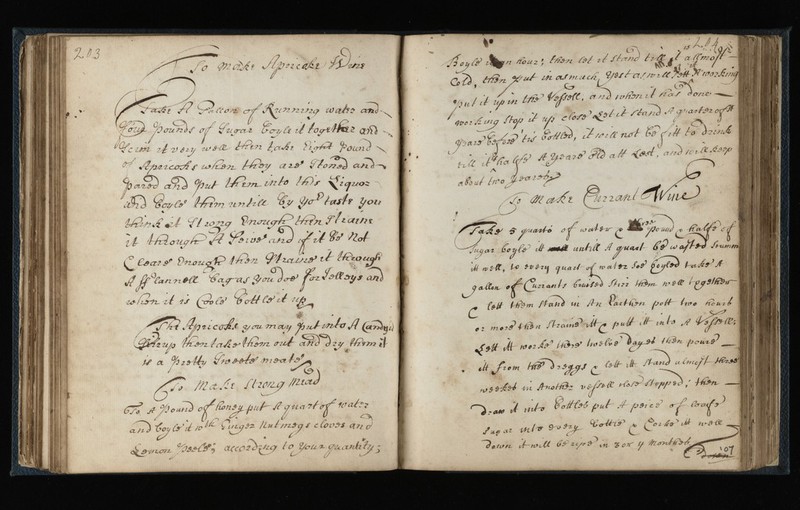 203
To make Apricake Wine
Take A Gallon of Running water and
four pounds of Sugar boyle it together and
Scim it very well then take Eight pound
of Apricocks when they are Stoned and
pared and put them into this Liquor
and boyle them untill by yor taste you
think it Strong Enough then Straine
it through A Seive and if it be Not
Cleare Enough then Straine it through
A fflannell bag as you doe for Jelleys and
when it is Cole bottle it up
The Apricoks you may put into A Candyed
Syrup then take them out and dry them it
is a pretty Sweete meate
To Make Strong Mead
To A pound of honey put A quart of water
and boyle it with Ginger Nutmegs cloves and
Lemon peele, according to your quantity;
204
Boyle it an hour; then let it stand till it is allmost
Cold, then put in as much yest as will sett it working
put it up in the Vessell, and when it has done
working stop it up close Let it stand A quarter of A
yeare before tis bottled, it will not be fitt to drink
till it halfe A yeare old att Lest, and will keep
about two yeares
To Make Currant Wine
Take 5 quarts of water & pound & halfe of
Sugar boyle itt untill A quart be wasted Scumm
itt well, to every quart of water soe boyled take A
gallon of Currants bruised Stir them well together
& lett them stand in An Earthen pott two hours
or more then Straine itt & putt itt into A Vessell;
Lett itt worke there twelve dayes then poure
itt from the dreggs & lett itt stand almost three
weekes in Another vessell close stopped; then
draw it into bottles put A peice of loafe
Sugar into every bottle & Corke itt well
down it will be ripe in 3 or 4 months
107